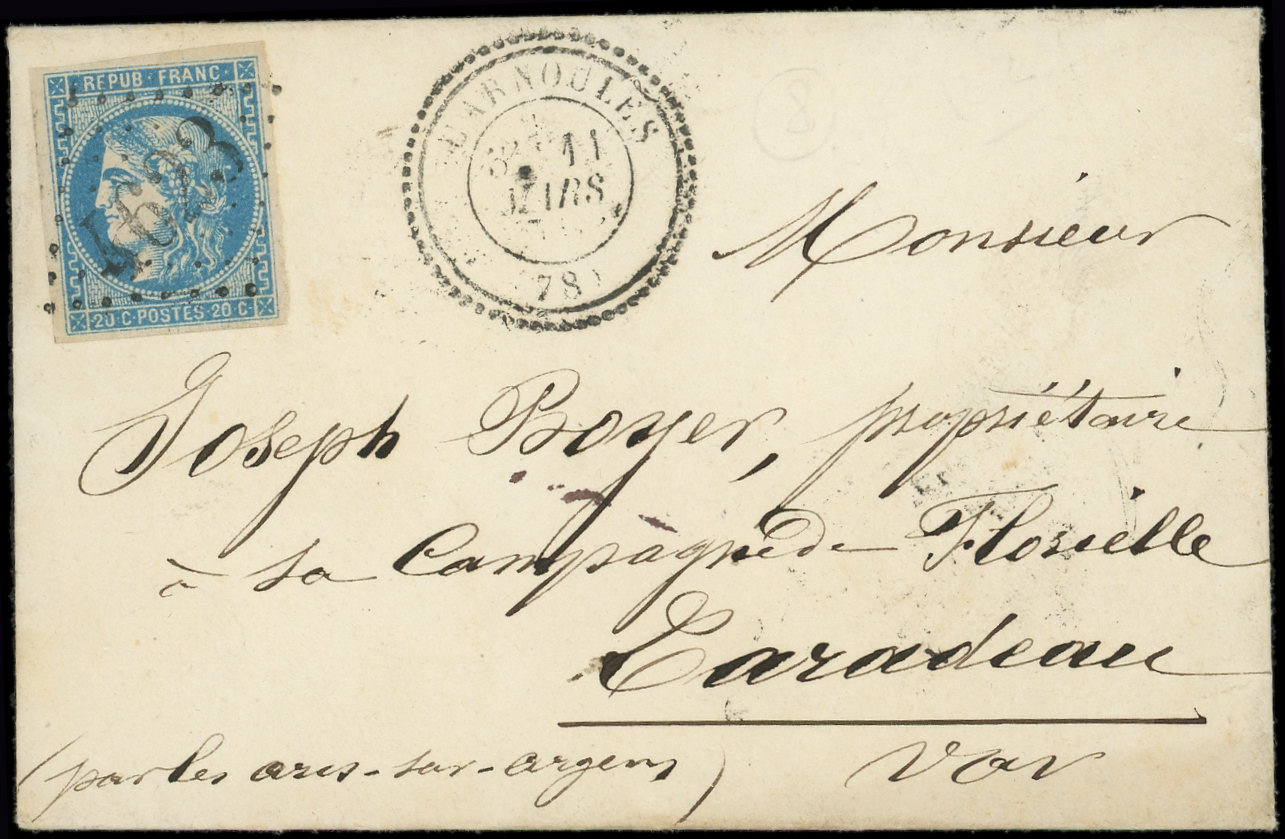 REPUB·FRANC·
20·C·POSTES·20·C·
CARNOULES
11
MARS
(78)
8
Monsieur
Joseph Boyer, propriétaire
à sa Campagne de Florielle
Taradeau
Var
(par les arcs-sur-argens)